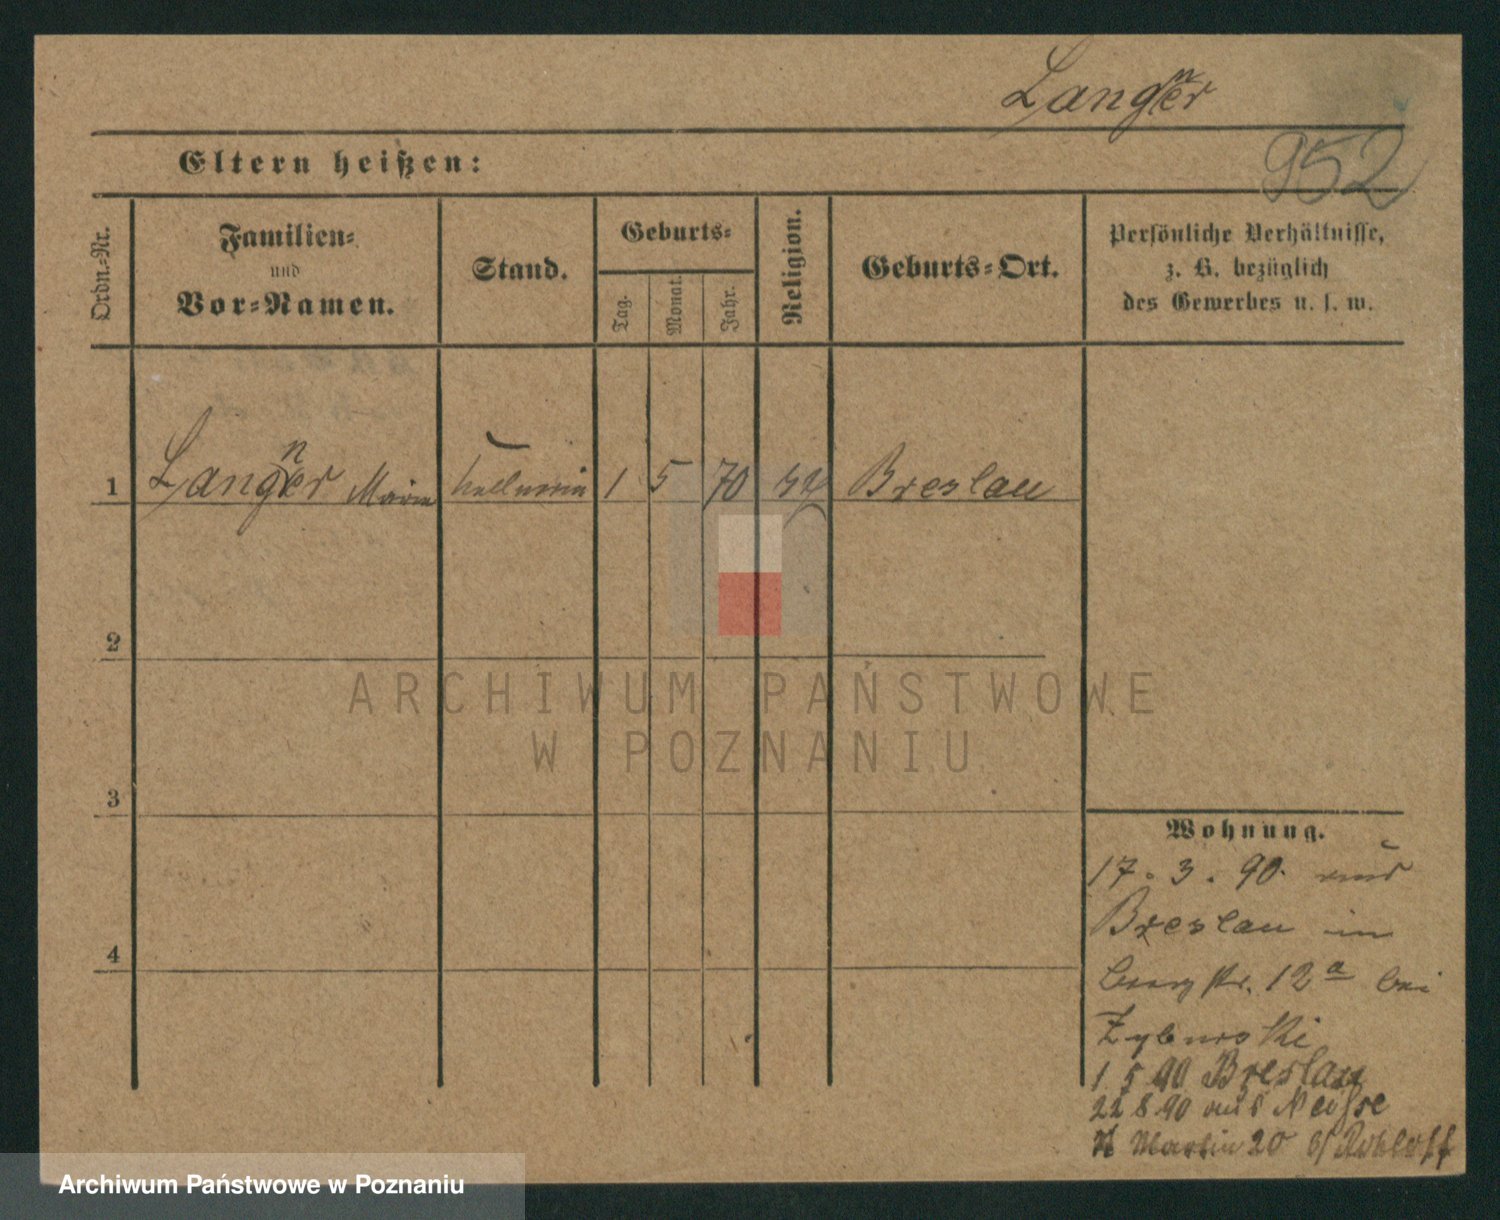 Langner
952
Eltern heißen:
Ordn.-Nr.
Familien-
und
Vor-Namen.
Stand.
Geburts-
Tag.
Monat.
Jahr.
Religion.
Geburts-Ort.
Persönliche Verhältnisse,
z. B. bezüglich
des Gewerbes u. s. w.
1 Langner Marie Kellnerin 1 5 70 Breslau
2
ARCHIWUM PAŃSTWOWE
W POZNANIU
3
Wohnung.
17. 3. 90. aus
Breslau in
4
str. 12a bei
Zyburski
1 5 90 Breslau
22 8 90 aus Neisse
St Martin 20 b/ Rohloff
Archiwum Państwowe w Poznaniu